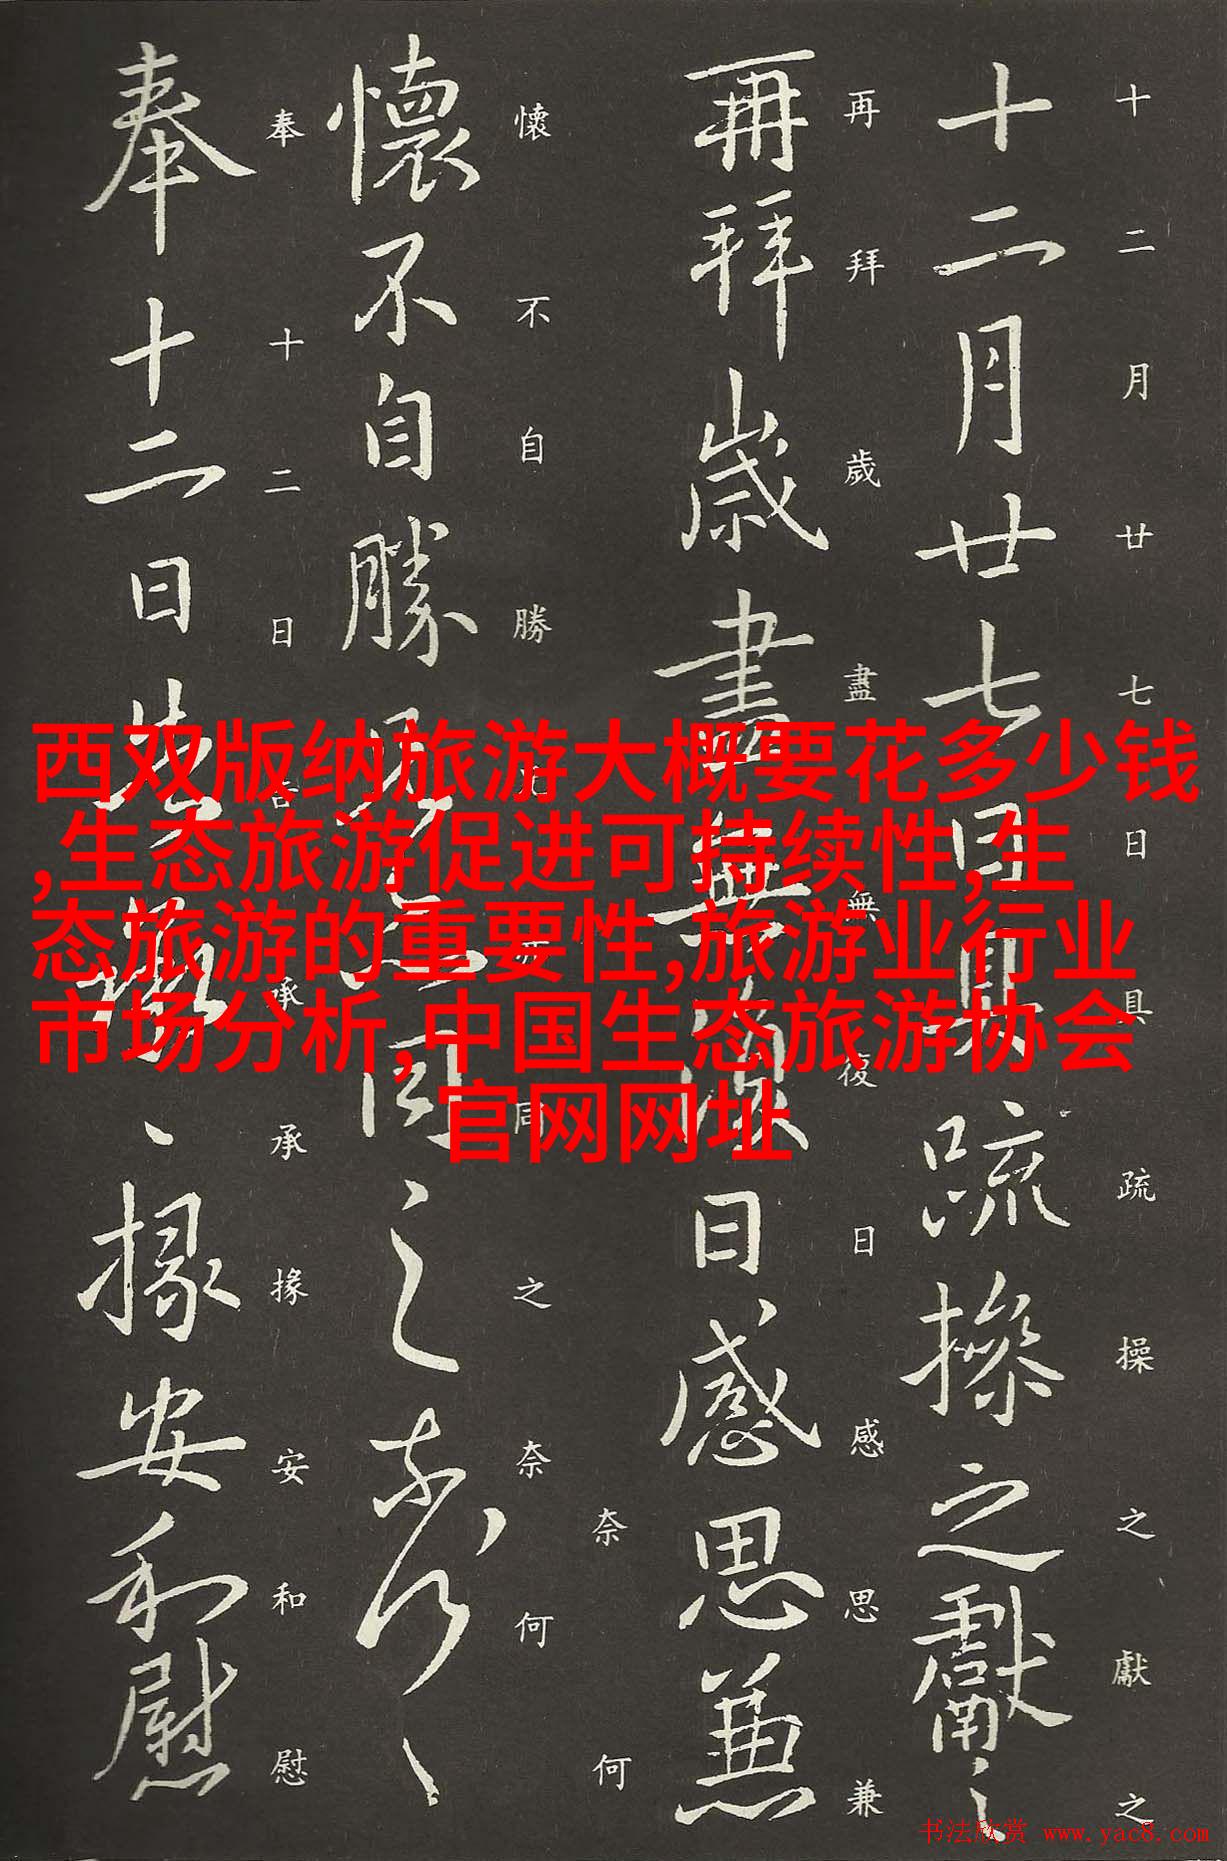 十二月廿七日具疏操之獻之
十二月廿七日具疏操之獻之
再拜歲盡無復日感思兼
再拜歲盡無復日感思兼
奈何
懷不自勝同之奈何
懷不自勝同之奈何
奉十二日告承承掾安和慰
奉十二日告承掾安和慰
西双版纳旅游大概要花多少钱
,生态旅游促进可持续性,生
态旅游的重要性,旅游业行业
市场分析,中国生态旅游协会
官网网址
书法欣赏 www.yac8.com